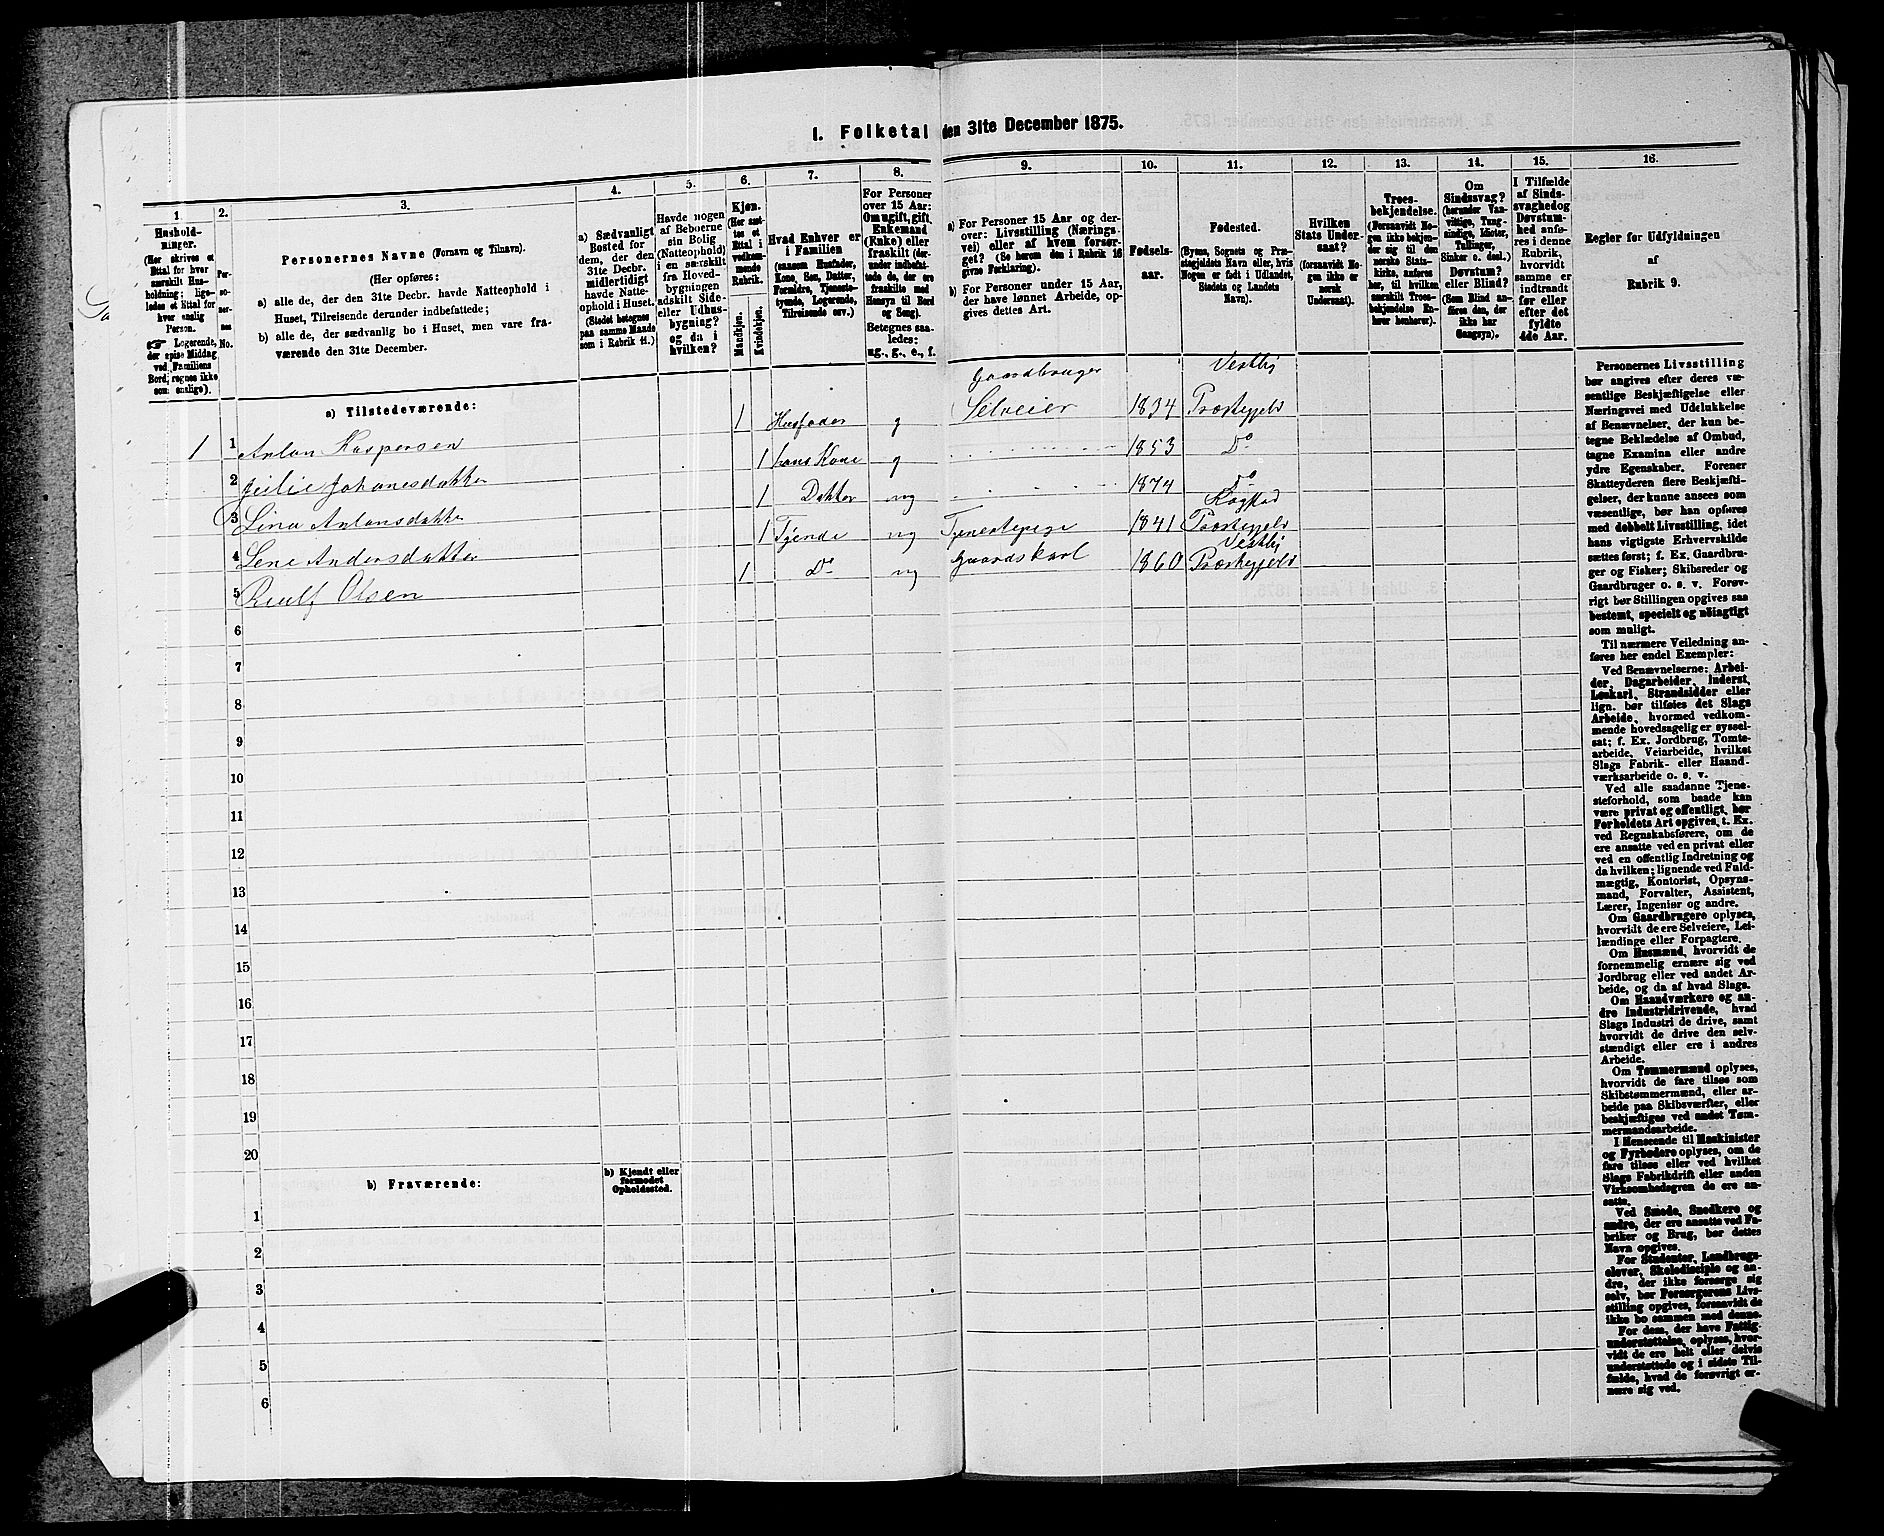 I. Folketal den 31te December 1875.
1.
2.
3.
4.
5.
6.
7.
8.
9.
10.
11.
12.
13.
14.
15.
16.
Husholdninger.
(Her skrives et Ettal for hver særskilt Husholdning; ligeledes et Ettal for hver enslig Person.
☞ Logerende, der spise Middag ved Familiens Bord, regnes ikke som enslige).
Personernes No.
Personernes Navne (Fornavn og Tilnavn).
(Her opføres:
a) alle de, der den 31te Decbr. havde Natteophold i Huset, Tilreisende derunder indbefattede;
b) alle de, der sædvanlig bo i Huset, men vare fraværende den 31te December.
a) Sædvanligt Bosted for dem, der den 31te Decbr. midlertidigt havde Natteophold i Huset.
(Stedet betegnes paa samme Maade som i Rubrik 11.)
Havde nogen af Beboerne sin Bolig (Natteophold) i en særskilt fra Hovedbygningen adskilt Side- eller Udhusbygning? og da i hvilken?
Kjøn.
(Her sættes et Ettal i vedkommende Rubrik.
Mandkjøn.
Kvindekjøn.
Hvad Enhver er i Familien
(saasom Husfader, Kone, Søn, Datter, Forældre, Tjenestetyende, Logerende, Tilreisende osv.)
For Personer over 15 Aar: Om ugift, gift, Enkemand (Enke) eller fraskilt (derunder indbefattede de, der ere fraskilte med Hensyn til Bord og Seng).
Betegnes saaledes: ug., g., e., f.
a) For Personer 15 Aar og derover: Livsstilling (Næringsvei) eller af hvem forsørget? (Se herom den i Rubrik 16 givne Forklaring).
b) For Personer under 15 Aar, der have lønnet Arbeide, opgives dettes Art.
Fødselsaar.
Fødested.
(Byens, Sognets og Præstegjeldets Navn eller, hvis Nogen er født i Udlandet, Stedets og Landets Navn).
Hvilken Stats Undersaat?
(forsaavidt Nogen ikke er norsk Undersaat).
Troesbekjendelse.
(Forsaavidt Nogen ikke bekjender sig til den norske Statskirke, anføres her, til hvilken særskilt Troesbekjendelse Enhver henhører).
Om Sindssvag?
(herunder Vanvittige, Tungsindige, Idioter, Tullinger, Sinker o. desl.)
Døvstum? eller Blind?
(Som Blind anføres den, der ikke har Gangsyn).
I Tilfælde af Sindssvaghed og Døvstumhed anføres i denne Rubrik, hvorvidt samme er indtraadt før eller efter det fyldte 4de Aar.
Regler for Udfyldningen af Rubrik 9.
a) Tilstedeværende:
1 1 Anton Kaspersen 1 Husfader g Gaardbruger Selveier 1834 Vestby Præstegjeld
2 Johanesdatter 1 hans Kone g 1853 Do
3 Lina Antonsdatter 1 Datter ug 1874 Do
4 Lene Andersdatter 1 Tjende ug Tjenestepige 1841 Præstegjeld
5 Olsen 1 Do ug Gaardskarl 1860 Vestby Præstegjeld
6
7
8
9
10
11
12
13
14
15
16
17
18
19
20
b) Fraværende:
b) Kjendt eller formodet Opholdssted.
1
2
3
4
5
6
Personernes Livsstilling
bør angives efter deres væ-
sentlige Beskjæftigelse eller
Næringsvei med Udelukkelse
af Benævnelser, der kun be-
tegne Beklædelse af Ombud,
tagne Examina eller andre
ydre Egenskaber. Forener
Skatteyderen flere Beskjæfti-
gelser, der kunne ansees som
væsentlige, bør han opføres
med dobbelt Livsstilling, idet
hans vigtigste Erhvervskilde
sættes først; f. Ex. Gaardbru-
ger og Fisker; Skibsreder og
Gaardbruger o. s. v. Forøv-
rigt bør Stillingen opgives saa
bestemt, specielt og nöiagtigt
som muligt.
Til nærmere Veiledning an-
føres her endel Exempler:
Ved Benævnelserne: Arbei-
der, Dagarbeider, Inderst,
Løskarl, Strandsidder eller
lign. bør tilføies det Slags
Arbeide, hvormed vedkom-
mende hovedsagelig er syssel-
sat; f. Ex. Jordbrug, Tomte-
arbeide, Veiarbeide, hvilket
Slags Fabrik- eller Haand-
værksarbeide o. s. v.
Ved alle saadanne Tjene-
steforhold, som baade kan
være privat og offentligt, bør
Forholdets Art opgives, t. Ex.
ved Regnskabsførere, om de
ere ansatte ved en privat eller
ved en offentlig Indretning og
da hvilken; lignende ved Fuld-
mægtig, Kontorist, Opsyns-
mand, Forvalter, Assistent,
Lærer, Ingeniør og andre.
Om Gaardbrugere oplyses,
hvorvidt de ere Selveiere, Lei-
lændinge eller Forpagtere.
Om Husmænd, hvorvidt de
fornemmelig ernære sig ved
Jordbrug eller ved andet Ar-
beide, og da af hvad Slags.
Om Haandværkere og an-
dre Industridrivende, hvad
Slags Industri de drive, samt
hvorvidt de drive den selv-
stændigt eller ere i andres
Arbeide.
Om Tømmermænd oplyses,
hvorvidt de fare tilsøs som
Skibstømmermænd, eller ar-
beide paa Skibsværfter, eller
beskjæftiges ved andet Tøm-
mermandsarbeide.
I Henseende til Maskinister
og Fyrbødere oplyses, om de
fare tilsøs eller ved hvilket
Slags Fabrikdrift eller anden
Virksomhedsgren de ere an-
satte.
Ved Smede, Snedkere og
andre, der ere ansatte ved Fa-
briker og Brug, bør dettes
Navn opgives.
For Studenter, Landbrugs-
elever, Skoledisciple og an-
dre, der ikke forsørge sig
selv, bør Forsørgerens Livs-
stilling opgives, forsaavidt de
ikke bo sammen med denne.
For dem, der have Fattig-
understøttelse, oplyses, hvor-
vidt de ere helt eller delvis
understøttede og i sidste Til-
fælde, hvad de forøvrigt er-
nære sig ved.